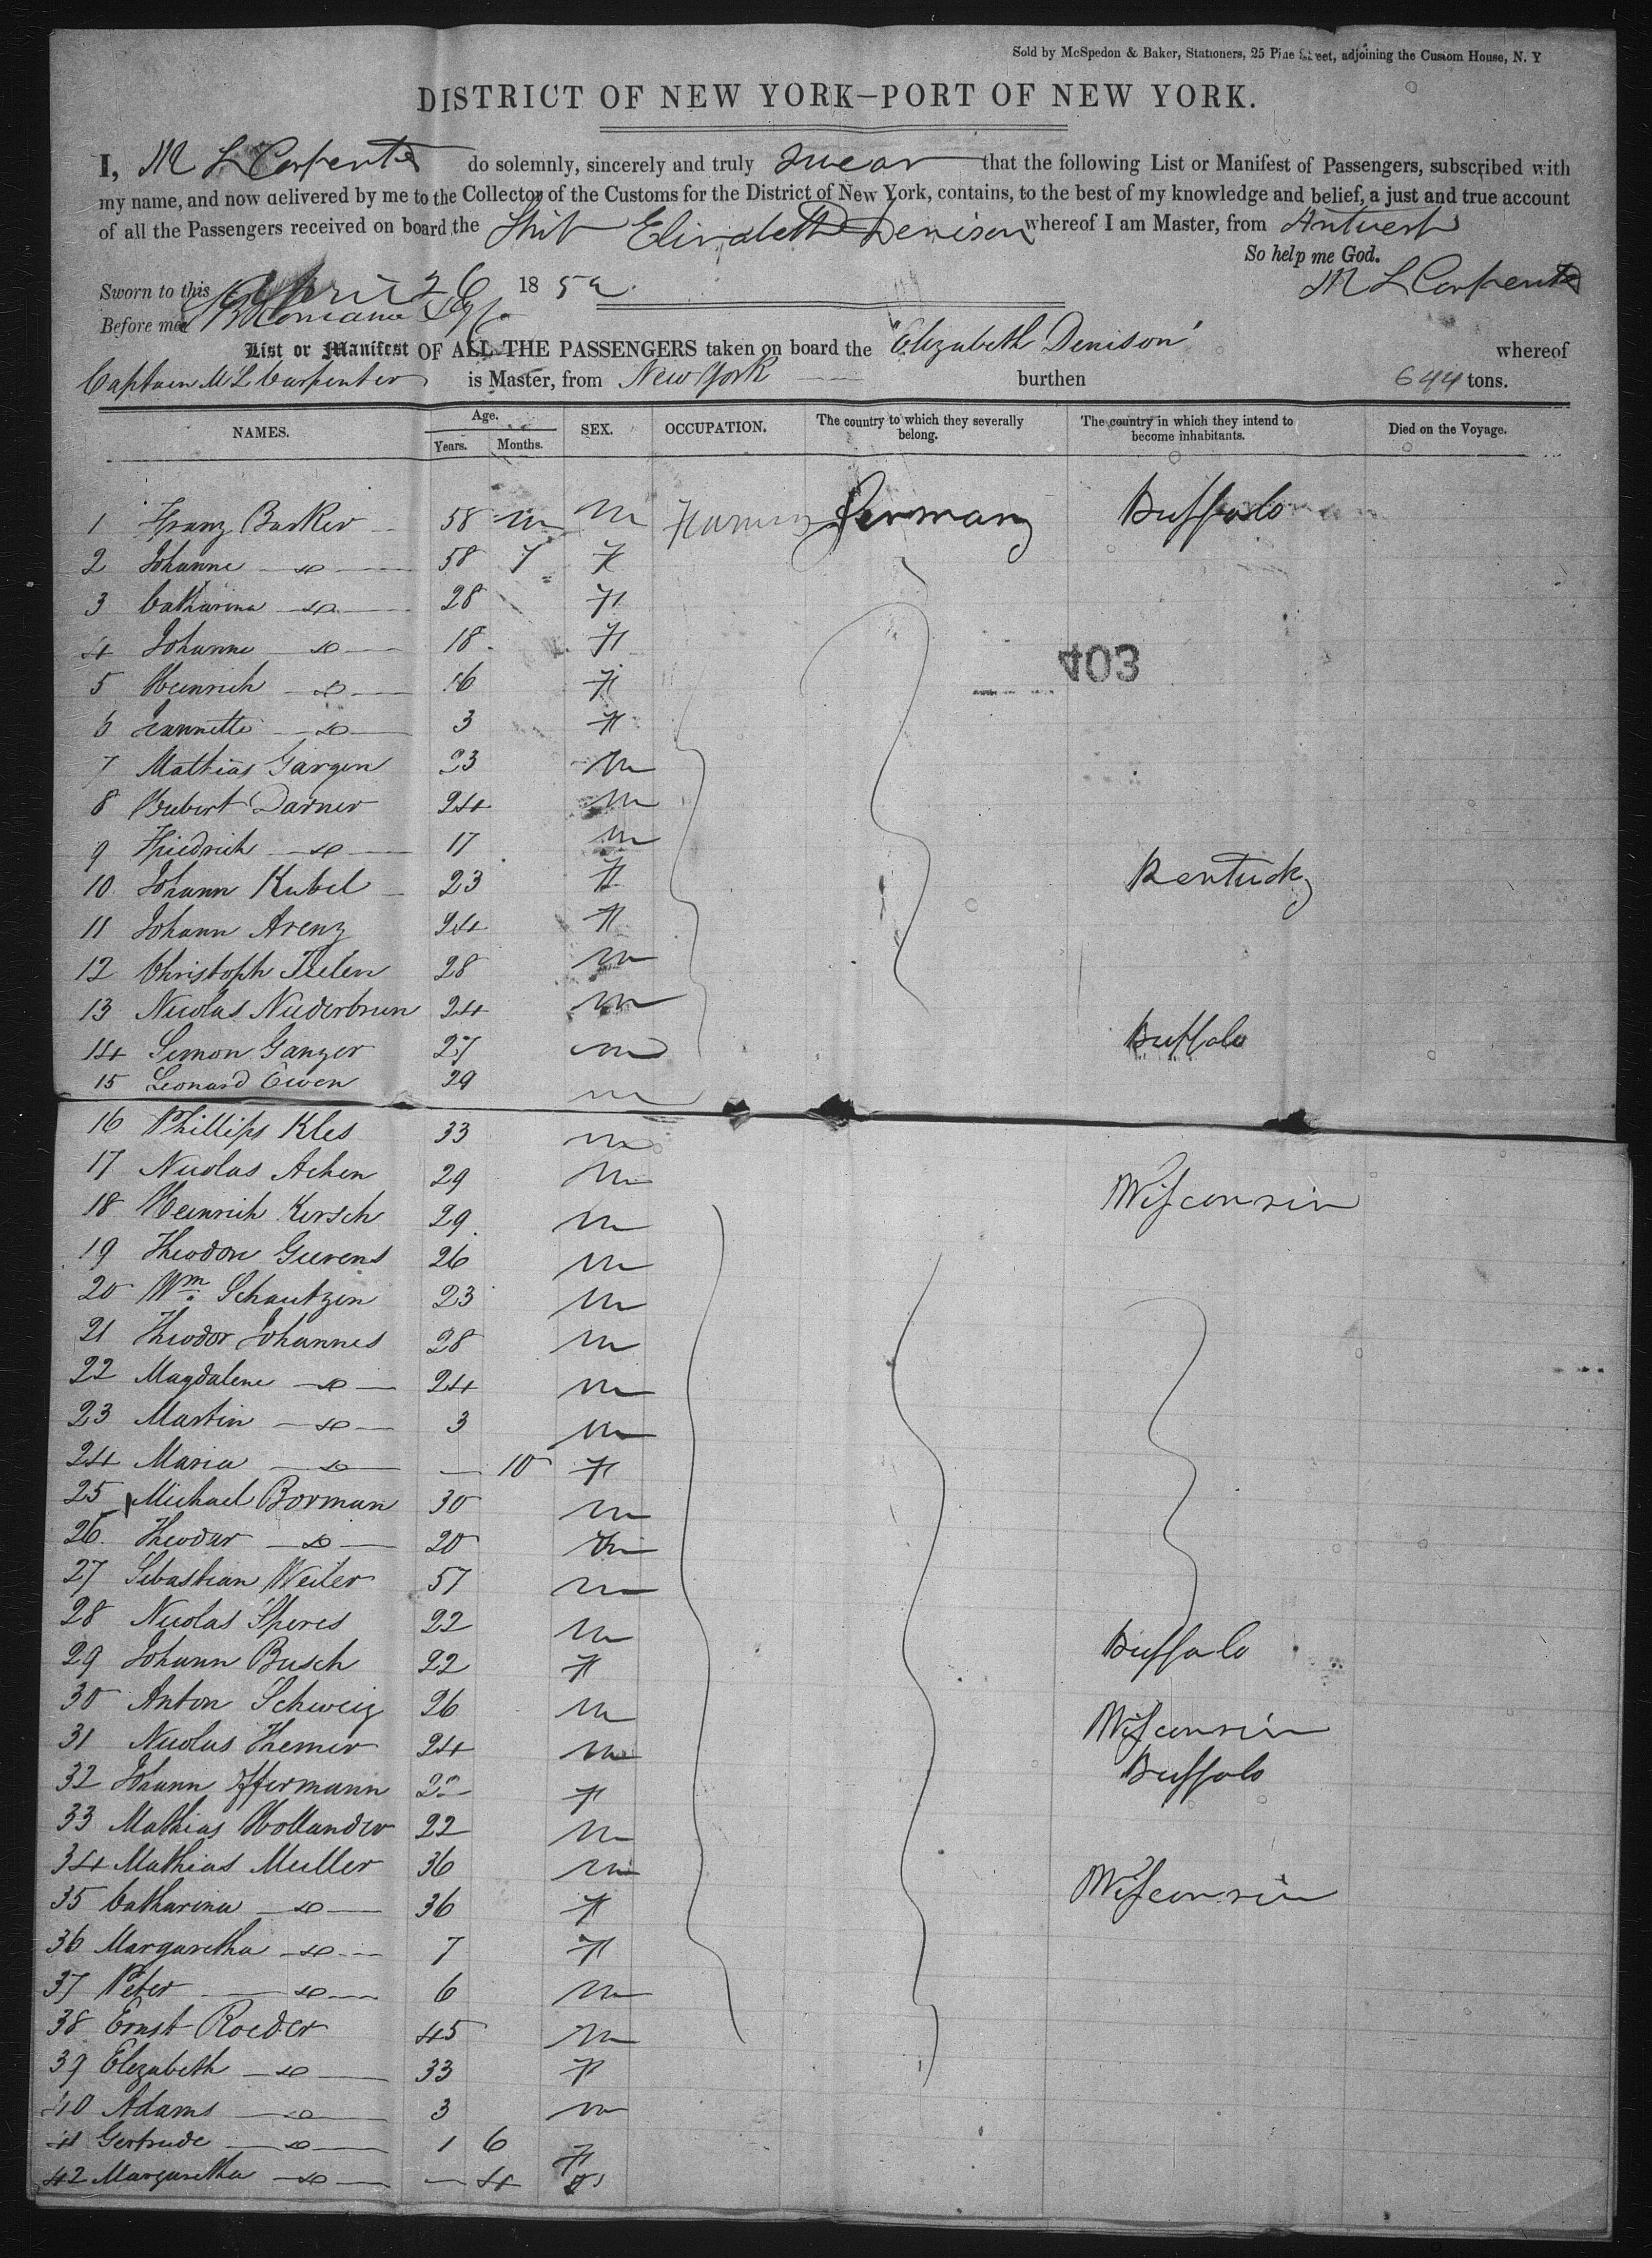 Sold by McSpedon & Baker, Stationers, 25 Pine Street, adjoining the Custom House, N. Y
DISTRICT OF NEW YORK—PORT OF NEW YORK.
I, M L Carpenter do solemnly, sincerely and truly swear that the following List or Manifest of Passengers, subscribed with
my name, and now delivered by me to the Collector of the Customs for the District of New York, contains, to the best of my knowledge and belief, a just and true account
of all the Passengers received on board the Ship Elizabeth Denison whereof I am Master, from Antwerp
So help me God.
Sworn to this April 26 1852 M L Carpenter
Before me
List or Manifest OF ALL THE PASSENGERS taken on board the "Elizabeth Denison" whereof
Captain M L Carpenter is Master, from New York burthen 644 tons.
NAMES. Age. Years. Months. SEX. OCCUPATION. The country to which they severally belong. The country in which they intend to become inhabitants. Died on the Voyage.
1 Franz Barker 58 m m Germany Buffalo
2 Johanne do 58 7 F
3 Catharina do 28 F
4 Johanne do 18 F
5 Heinrich do 16 F
403
6 Jeannette do 3 F
7 Mathias Gargen 23 m
8 Hubert Darner 24 m
9 Friedrich do 17 m
10 Johann Kubel 23 F Kentucky
11 Johann Arenz 24 F
12 Christoph Tielen 28 m
13 Nicolas Niederbrun 24 m
14 Simon Ganzer 27 m Buffalo
15 Leonard Ewen 29 m
16 Phillips Kles 33 m
17 Nicolas Achen 29 m Wisconsin
18 Heinrich Kersch 29 m
19 Theodore Geerens 26 m
20 Wm. Schautzen 23 m
21 Theodor Johannes 28 m
22 Magdalene do 24 m
23 Martin do 3 m
24 Maria do — 10 F
25 Michael Borman 30 m
26 Theodor do 20 m
27 Sebastian Weiler 57 m
28 Nicolas Speres 22 m Buffalo
29 Johann Busch 22 F
30 Anton Schweig 26 m Wisconsin
31 Nicolas Themer 24 m Buffalo
32 Johann Iffermann 22 F
33 Mathias Hollander 22 m
34 Mathias Muller 36 m Wisconsin
35 Catharina do 36 F
36 Margaretha do 7 F
37 Peter do 6 m
38 Ernst Roeder 45 m
39 Elizabeth do 33 F
40 Adams do 3 m
41 Gertrude do 1 6 F
42 Margaretha do — 4 F